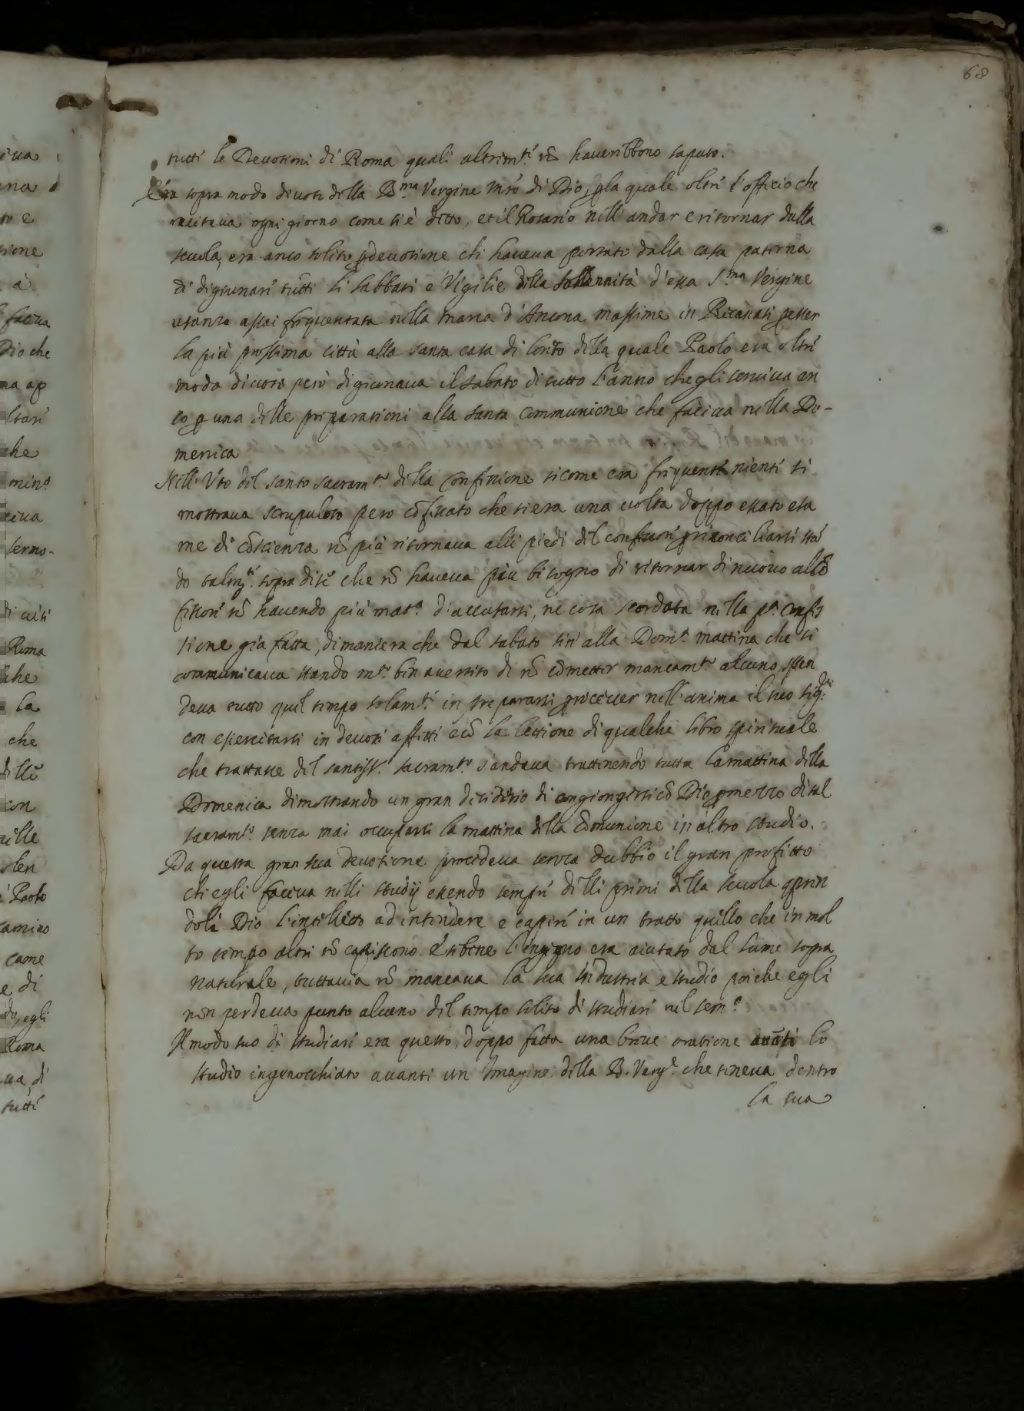 68
tutti le Devotioni di Roma quali altrim.ti nõ haverebbono saputo.
Era sopra modo divoto della B.ma Vergine Mrẽ di Dio, p la quale oltre l'officio che
recitava ogni giorno come si è detto, et il Rosario nell'andar e ritornar dalla
scuola, era anco solito p devotione che haveva portato dalla casa paterna
di digiunare tutti li sabbati e Vigilie della sollennità d'essa S.ma Vergine
usanza assai frequentata nella marca d'Ancona massime in Recanati p esser
la più prossima città alla santa casa di Loreto della quale Paolo era oltre
modo divoto però digiunava il sabato di tutto l'anno che gli serviva an
co p una delle preparationi alla santa communione che faceva nella Do-
menica
Nell'Uso del santo sacram.to della confessione sicome era frequente nienti si
mostrava scrupuloso pero cõfessato che si era una volta doppo esatto esa
me di cõscienza nõ più ritornava alli piedi del confessore p riconciliarsi stã
do talm.te sopra di se che nõ haveva più bisogno di ritornar di nuovo al cõ
fessore nõ havendo più mat.a d'accusarsi, ne cosa scordata nella p.a confes
sione già fatta, dimaniera che dal sabato sin alla Dom.ca mattina che si
communicava stando m.to ben avertito di nõ cõmetter mancam.to alcuno spen
deva tutto quel tempo solam.te in prepararsi p ricever nell'anima il suo Sig.re
con esercitarsi in devoti affetti e cõ la lettione di qualche libro spirituale
che trattasse del santiss.o sacram.to s'andava trattenendo tutta la mattina della
Domenica dimostrando un gran desiderio di congiongersi cõ Dio p mezzo di tal
sacram.to senza mai occuparsi la mattina della cõmunione in altro studio.
Da questa gran sua devotione procedeva senza dubbio il gran profitto
che egli faceva nelli studij essendo sempre delli primi della scuola apren
doli Dio l'intelletto ad intendere e capire in un tratto quello che in mol
to tempo altri nõ capiscono. E sibene l'ingegno era aiutato dal lume sopra
naturale, tuttavia nõ mancava la sua industria e studio poiche egli
non perdeva punto alcuno del tempo solito di studiare nel sem.o
Il modo suo di studiare era questo, doppo fatta una breve oratione avãti lo
studio ingenocchiato avanti un Imagine della B. Verg.e che teneva dentro
la sua